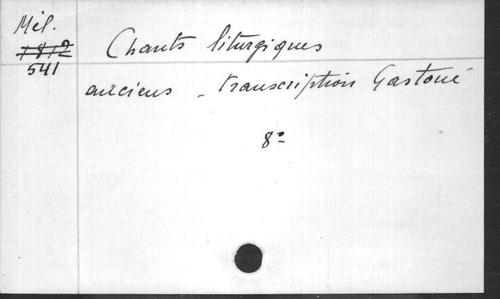 Mél.
7812
541
Chants liturgiques
anciens - transcription Gastoué
8º